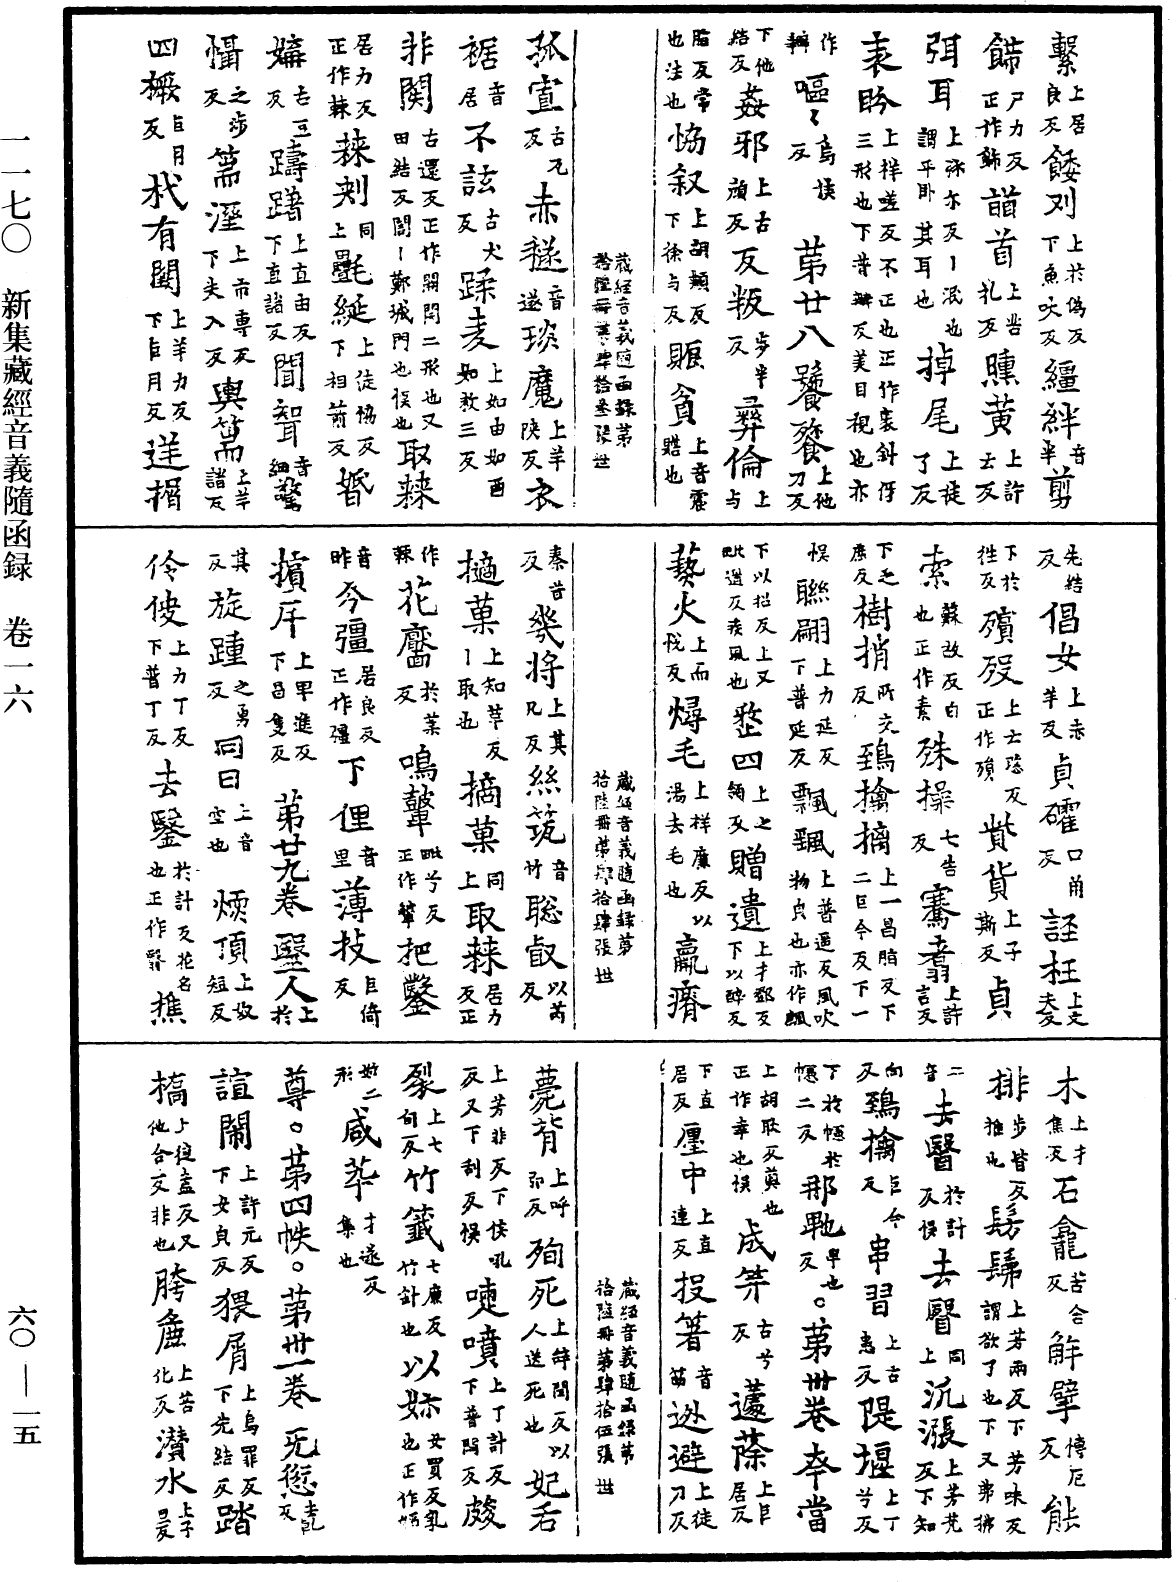 繫上居良反餧刈上於偽反下魚吠反繮絆音半剪
餙尸力反正作飾䣭首上慈孔反纁黄上許云反
弭耳上弥尒反丨泯也謂平卧其耳也掉尾上徒了反
衺盻上样嗟反不正也正作衺斜㑨三形也下普辦反美目視也亦
作辦嘔〻烏侯反第廿八饕餮上他刀反
下他結反姦邪上古顔反反叛步半反彝倫上与
脂反常也法也恊叙上胡頰反下徐与反賑貧上音震贍也
藏經音義隨函録第拾陸冊第肆拾叁張世
孤㝎古兀反赤襚音遂琰魔上羊陜反衣
裾音居不詃古犬反蹂麦上如由如酉如救三反
非関古還反正作開関二形也又田結反闇丨鄭城門也悮也取棘
居力反正作棘棘刺同上㲲綖上徒恊反下相前反婚
媾古豆反躊躇上直由反下直諸反聞聟音細驚
懾之涉反篅溼上市專反下失入反輿篅上羊諸反
四橛巨月反杙有闑上羊力反下巨月反逆揟
秦昔反㡬將上其兀反絲筑音竹聡叡以芮反
擿菓上知革反丨取也摘菓同上取棘居力反正
作棘花黶於葉反鳴鼙毗兮反正作鼙把鑿
音昨今彊居良反正作殭下俚音里薄技巨倚反
擯斥上卑進反下昌隻反第廿九卷毉人上於
其反旋踵之勇反同曰上音空也煗頂上奴短反
伶俜上力丁反下普丁反去䃜於計反花名也正作瞖樵
先結反倡女上赤羊反貞確口角反誣枉上文夫反
下於往反殯殁上士恐反正作殞貲貨上子斯反貞
索蘇故反白也正作素殊操七告反騫翥上許言反
下之庶反樹捎所交反鵄擒摛上一昌脂反下二巨今反下一
悮聮翩上力延反下普延反飄颻上普遥反風吹物皃也亦作飄
下以招反上又毗遥反疾風也整四上之領反贈遺上才鄧反下以醉反
爇火上而恱反燖毛上样廉反以湯去毛也羸瘠
藏經音義隨函録第拾陸冊第肆拾肆張世
木上才焦反石龕苦含反觧擘博厄反能
排步皆反推也髣髴上芳兩反下芳味反謂欲了也下又弗拂
二音去瞖於計反悮去瞖同上沉漲上芳梵反下知
向反鵄擒巨今反串習上古患反隄堰上丁兮反
下於幰於幰二反那𨈭卑也反。第卅卷夲當
上胡耿反奠也正作幸也悮成笄古兮反蘧蒢上巨居反
下直居反𢊍中上直連反投箸音筯逃避上徒刀反
藏經音義隨函録第拾陸冊第肆拾伍張世
薨背上呼弘反殉死上辝閏反以人送死也妃㖞
上芳非反下侯吼反又下刮反悮嚏噴上丁計反下普悶反皴
裂上七旬反竹籤七廉反竹針也以妳女買反乳也正作㛋
妳二形咸萃才遂反集也
尊。第四帙。第卅一卷旡愆去乹反
諠閙上許元反下女㒵反猥屑上烏罪反下先結反踏
槗上徒盍反又他合反非也胯麁上苦化反濽水上子旱反
一一七〇新集藏經音義隨函録卷一六
六〇—一五